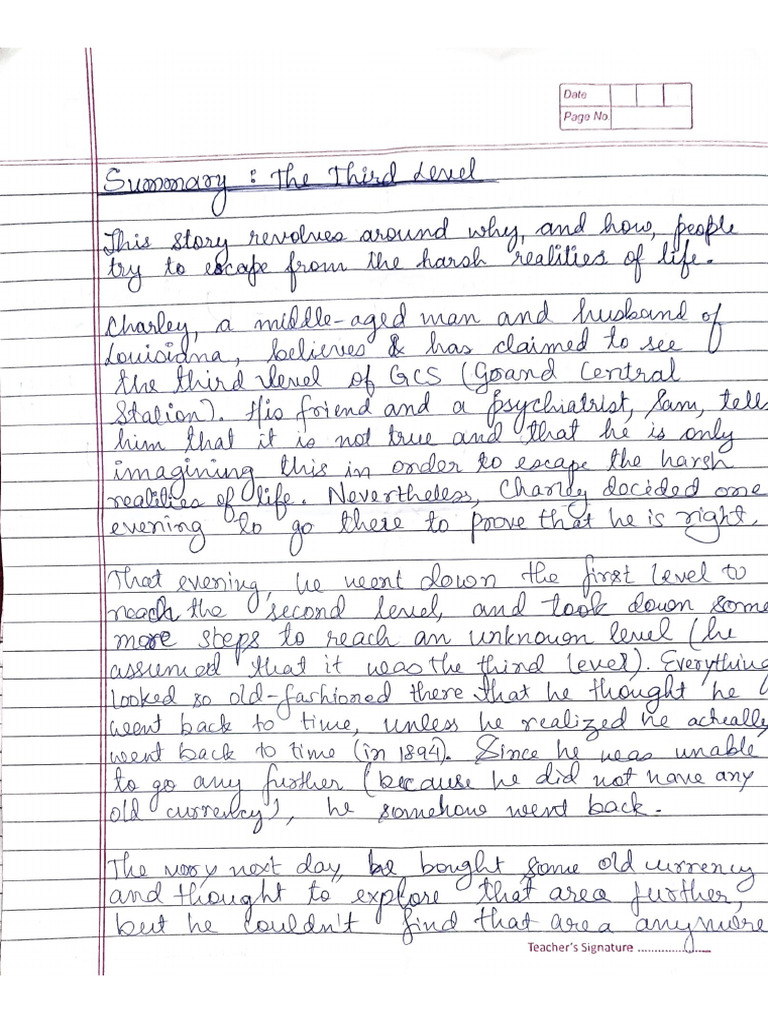 Date
Page No.
Summary : The Third Level
This story revolves around why, and how, people
try to escape from the harsh realities of life.
Charley, a middle-aged man and husband of
Louisiana, believes & has claimed to see
the third level of GCS (Grand Central
Station). His friend and a psychiatrist, Sam, tells
him that it is not true and that he is only
imagining this in order to escape the harsh
realities of life. Nevertheless, Charley decided one
evening to go there to prove that he is right.
That evening, he went down the first level to
reach the second level, and took down some
more steps to reach an unknown level (he
assumed that it was the third level). Everything
looked so old-fashioned there that he thought he
went back to time, unless he realized he actually
went back to time (in 1894). Since he was unable
to go any further (because he did not have any
old currency), he somehow went back.
The very next day, he bought some old currency
and thought to explore that area further,
but he couldn't find that area anymore
Teacher's Signature